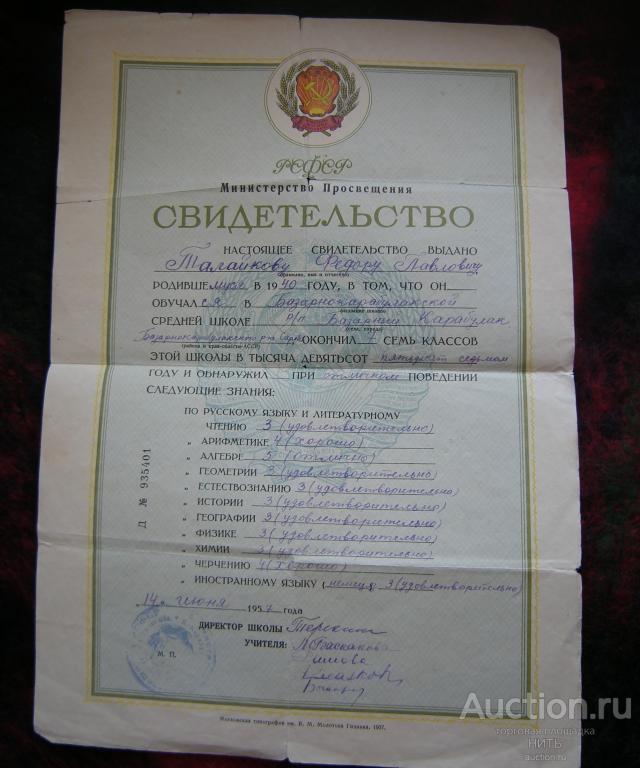 РСФСР
Министерство Просвещения
СВИДЕТЕЛЬСТВО
НАСТОЯЩЕЕ СВИДЕТЕЛЬСТВО ВЫДАНО
Талайкову Федору Павловичу
(фамилия, имя и отчество)
РОДИВШЕМУСЯ В 1940 ГОДУ, В ТОМ, ЧТО ОН
ОБУЧАЛСЯ В Базарнокарабулакской
(название школы)
СРЕДНЕЙ ШКОЛЕ р/п Базарный Карабулак
(село, город)
Базарнокарабулакского р-на ОКОНЧИЛ 7 СЕМЬ КЛАССОВ
ЭТОЙ ШКОЛЫ В ТЫСЯЧА ДЕВЯТЬСОТ пятьдесят седьмом
ГОДУ И ОБНАРУЖИЛ ПРИ отличном ПОВЕДЕНИИ
СЛЕДУЮЩИЕ ЗНАНИЯ:
ПО РУССКОМУ ЯЗЫКУ И ЛИТЕРАТУРНОМУ
ЧТЕНИЮ 3 (удовлетворительно)
„ АРИФМЕТИКЕ 4 (хорошо)
„ АЛГЕБРЕ 5 (отлично)
„ ГЕОМЕТРИИ 3 (удовлетворительно)
„ ЕСТЕСТВОЗНАНИЮ 3 (удовлетворительно)
„ ИСТОРИИ 3 (удовлетворительно)
„ ГЕОГРАФИИ 3 (удовлетворительно)
„ ФИЗИКЕ 3 (удовлетворительно)
„ ХИМИИ 3 (удовлетворительно)
„ ЧЕРЧЕНИЮ 4 (хорошо)
„ ИНОСТРАННОМУ ЯЗЫКУ (немец.) 3 (удовлетворительно)
Д № 935401
„14„ июня 1957 года
ДИРЕКТОР ШКОЛЫ
УЧИТЕЛЯ:
М. П.
Московская типография им. В. М. Молотова Гознака. 1957.
Auction.ru
торговая площадка
НИТЬ
auction.ru